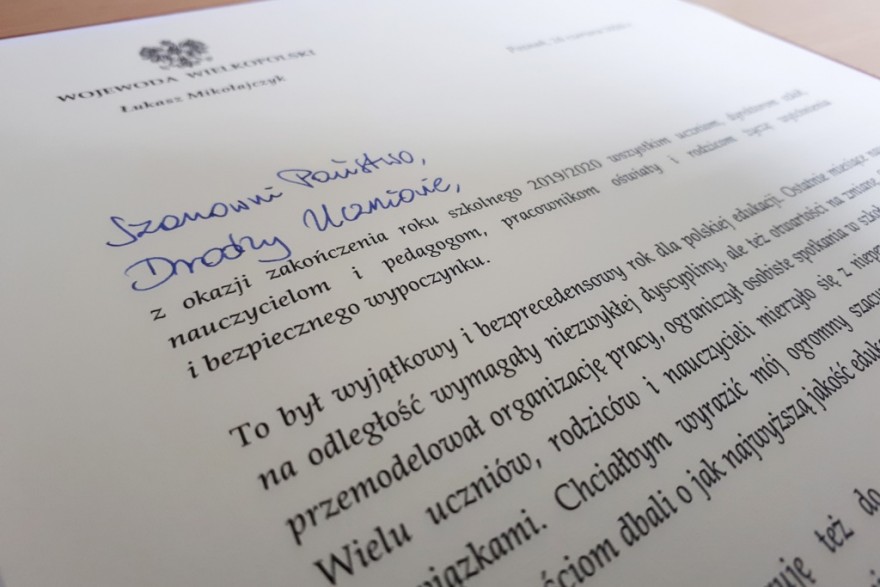 WOJEWODA WIELKOPOLSKI
Łukasz Mikołajczyk
Szanowni Państwo,
Drodzy Uczniowie,
z okazji zakończenia roku szkolnego 2019/2020 wszystkim uczniom, dyrektorom szkół,
nauczycielom i pedagogom, pracownikom oświaty i rodzicom życzę
i bezpiecznego wypoczynku.
To był wyjątkowy i bezprecedensowy rok dla polskiej edukacji. Ostatnie miesiące
na odległość wymagały niezwykłej dyscypliny, ale też otwartości na zmianę.
przemodelował organizację pracy, ograniczył osobiste spotkania w
Wielu uczniów, rodziców i nauczycieli mierzyło się z
Chciałbym wyrazić mój ogromny
dbali o jak najwyższą jakość
też do